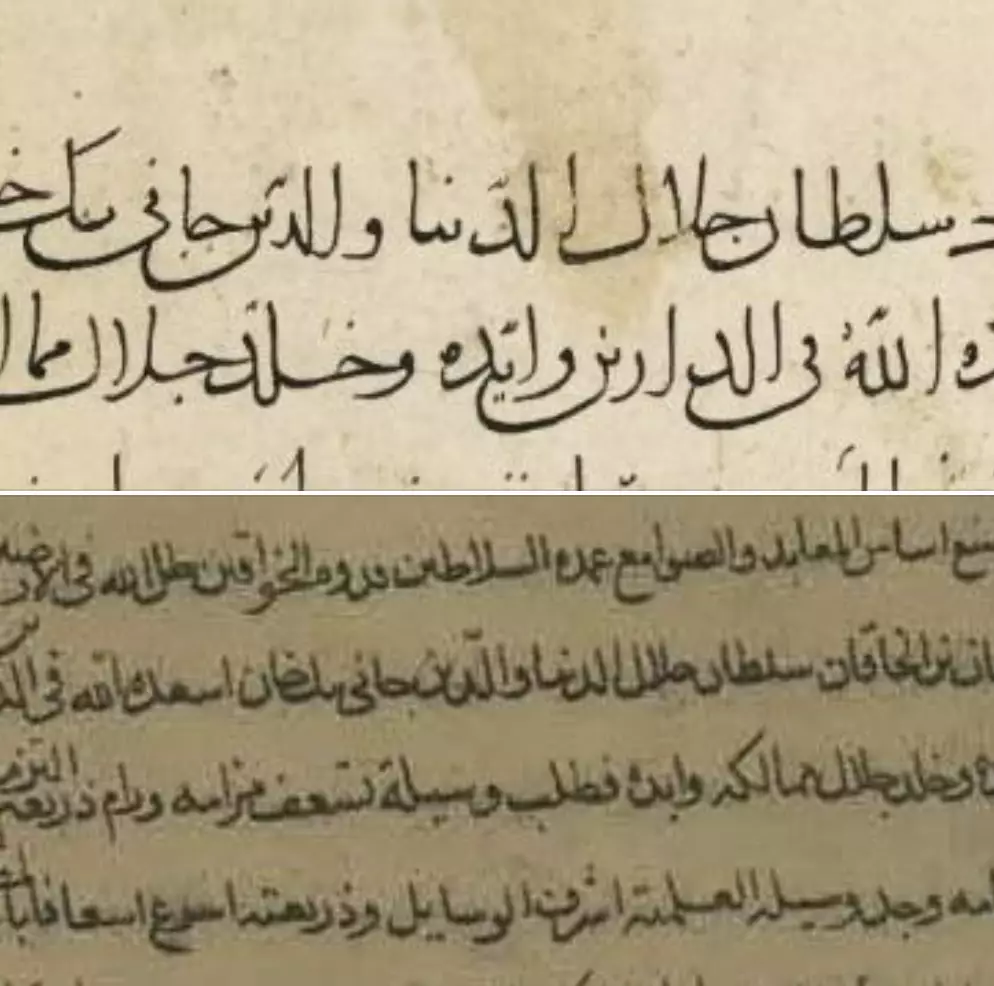 سلطان جلال الدنيا والدين جانی بک خـ
ـده الله فی الدارين وايّده وخلّد جلال مما
اساس المعابد والصوامع عمده السلاطين قدروه الخواقين ظل الله فی الارضين
الخاقان سلطان جلال الدنيا والدّين جانی بک خان اسعده الله فی الد
وخلد جلال ممالكه وايده فطلب وسيلة تسعف مرامه ورام ذريعة
ـامه وجد وسيلة العلمية اشرف الوسايل وذريعته اسوغ اسعافا